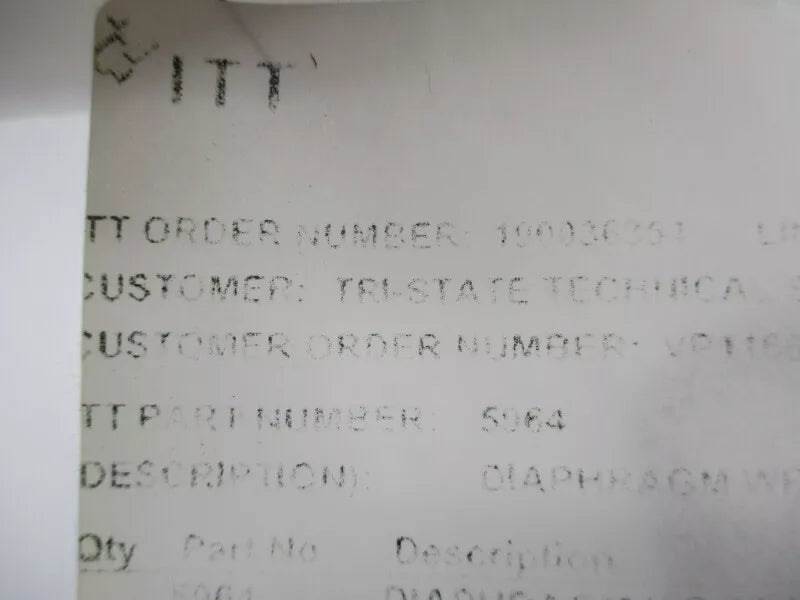 ITT
ITT ORDER NUMBER: 190036351
CUSTOMER: TRI-STATE TECHNICAL
CUSTOMER ORDER NUMBER:
ITT PART NUMBER: 5964
DESCRIPTION): DIAPHRAGM
Qty Part No Description
5964